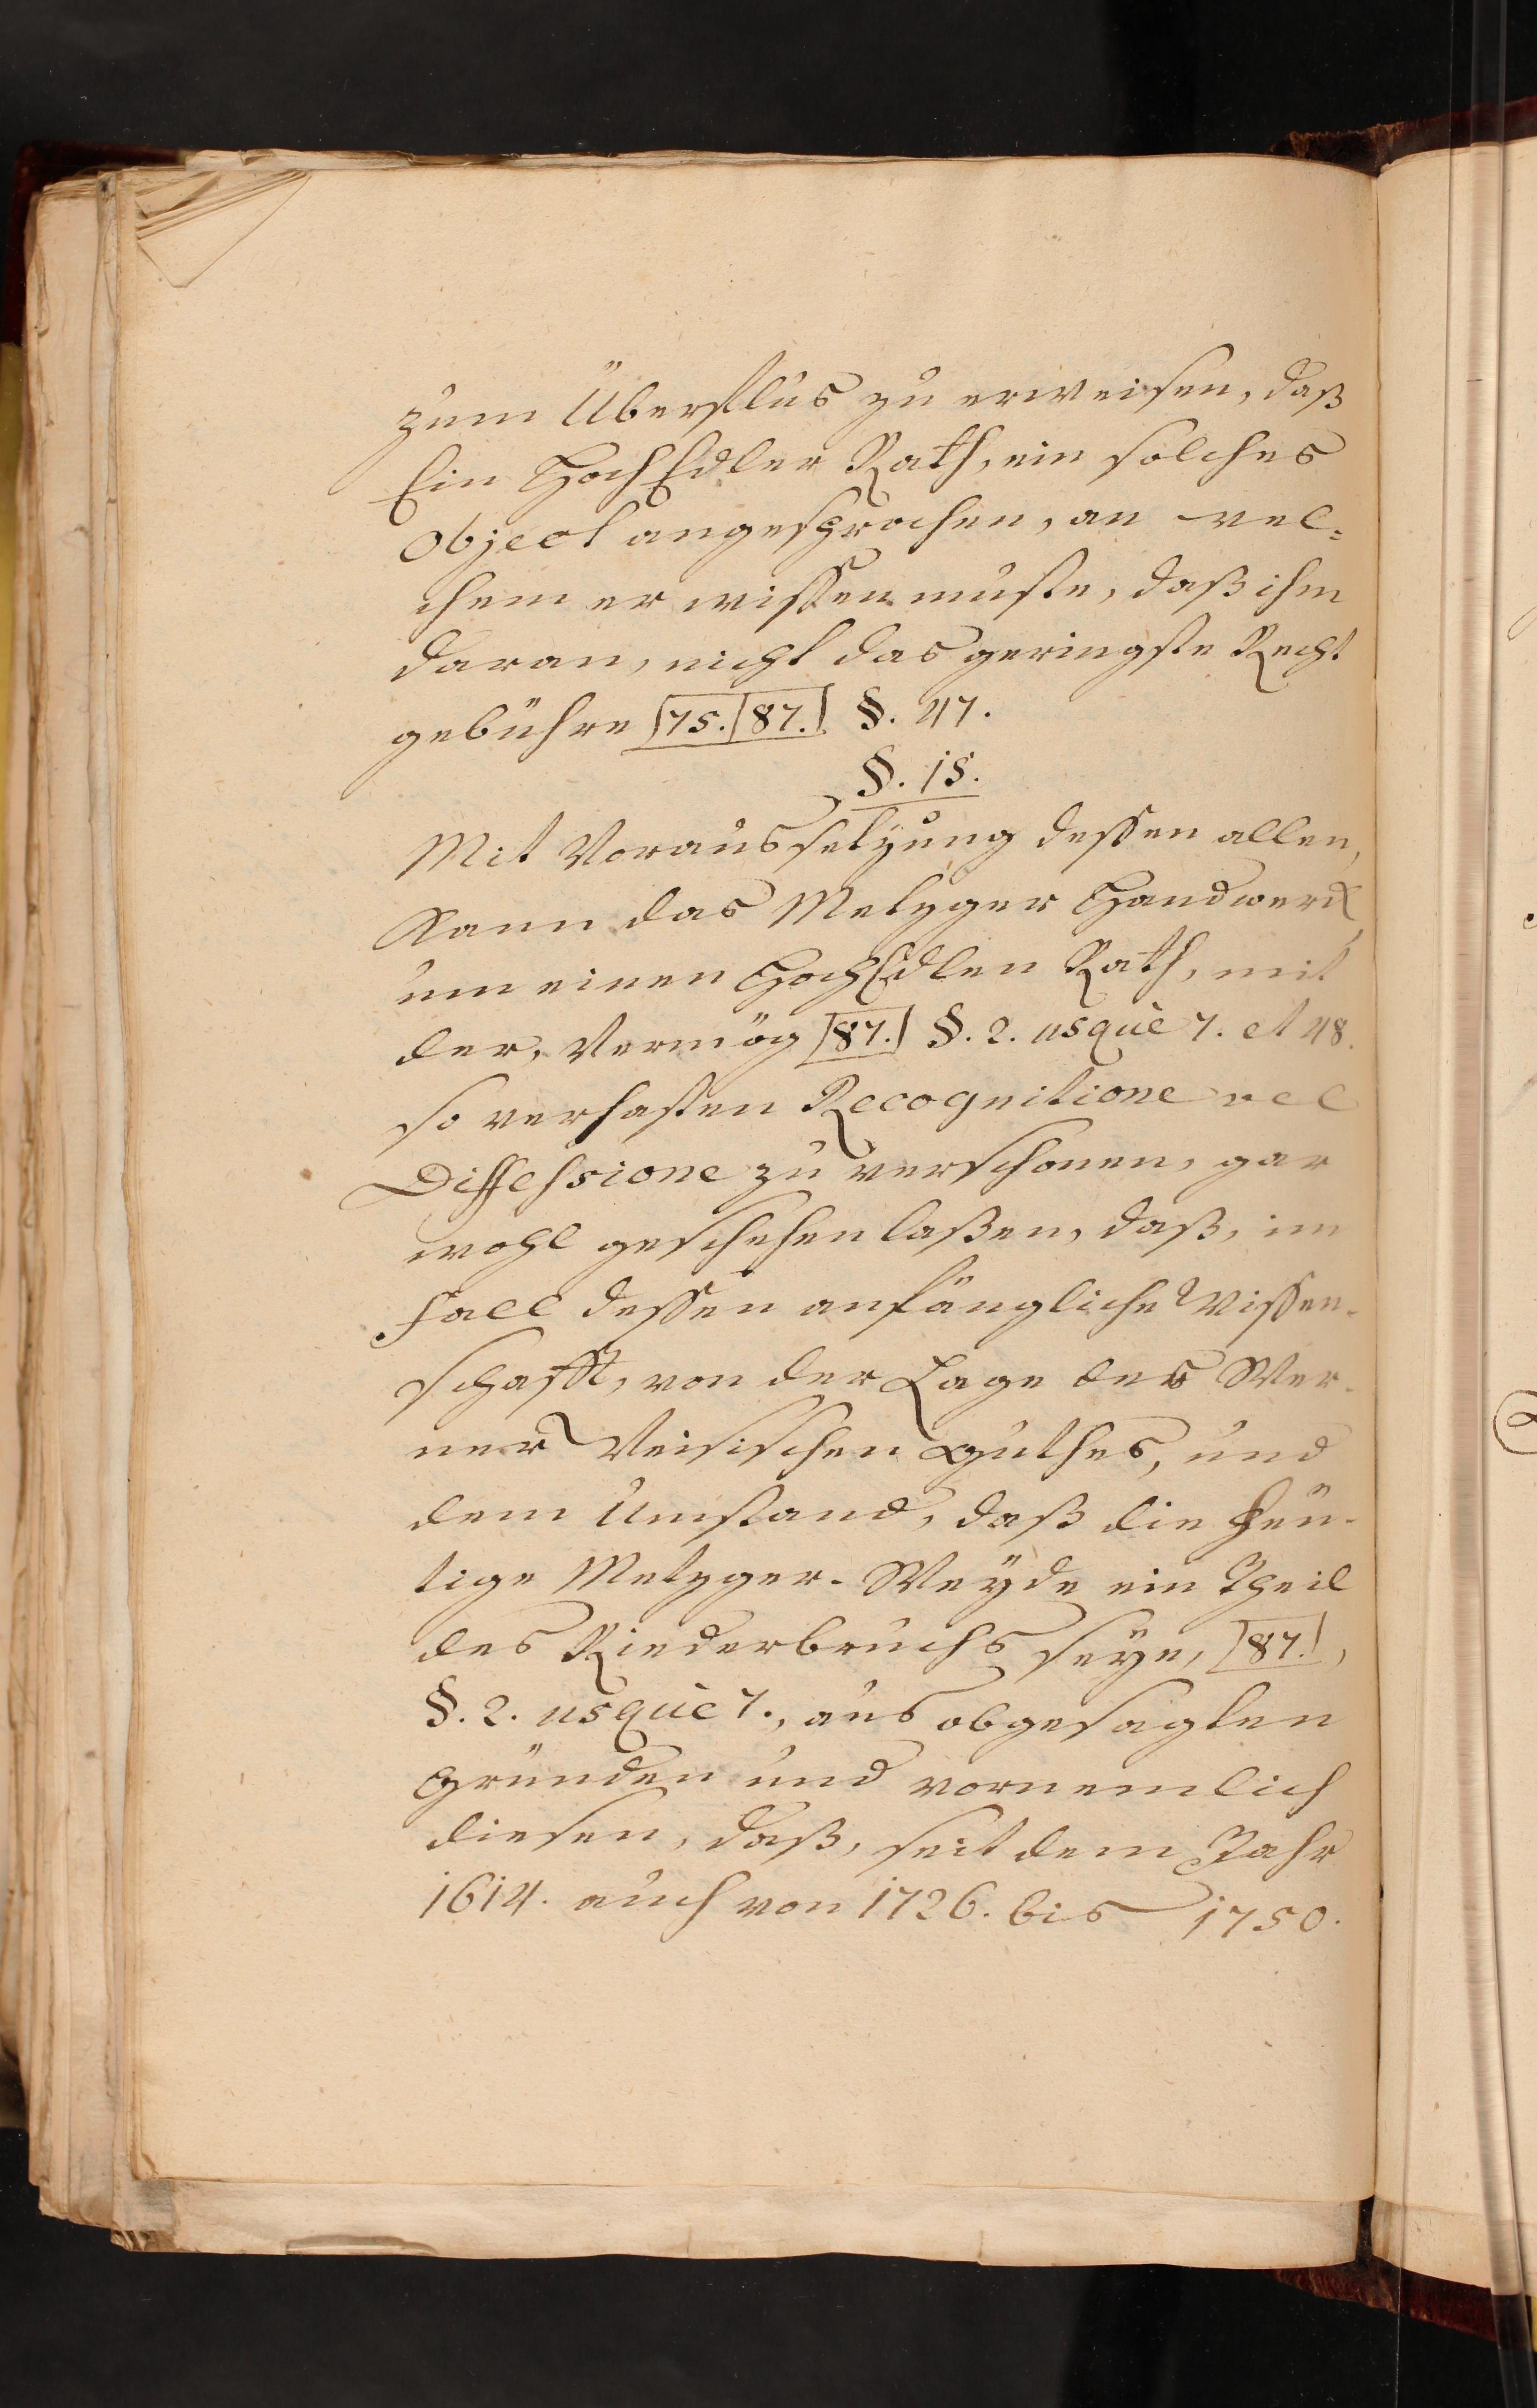 zum Überfluß zu erweisen, daß
Ein HochEdler Rath, ein solches
Object angesprochen, an wel=
chem er wissen muste, daß ihm
daran, nicht das geringste Recht
gebühre [75.] [87.] §. 47.
§. 15.
Mit Voraussetzung dessen allen,
Kann das Metzger Handwerck,
um einen HochEdlen Rath, mit
der, Vermög [87.] §. 2. usque 7. et 48.
so verhasten Recognitione vel
Diffessione zu verschonen, gar
wohl geschehen laßen, daß, im
Fall dessen anfängliche Wissen-
schafft, von der Lage des Wer-
ner Weisischen Guthes, und
dem Umstand, daß die heu-
tige Metzger-Weyde ein Theil
des Riederbruchs seye, [87.],
§. 2. usque 7., aus obgesagten
Gründen und vornemlich
diesen, daß, seit dem Jahr
1614. auch von 1726. bis 1750.